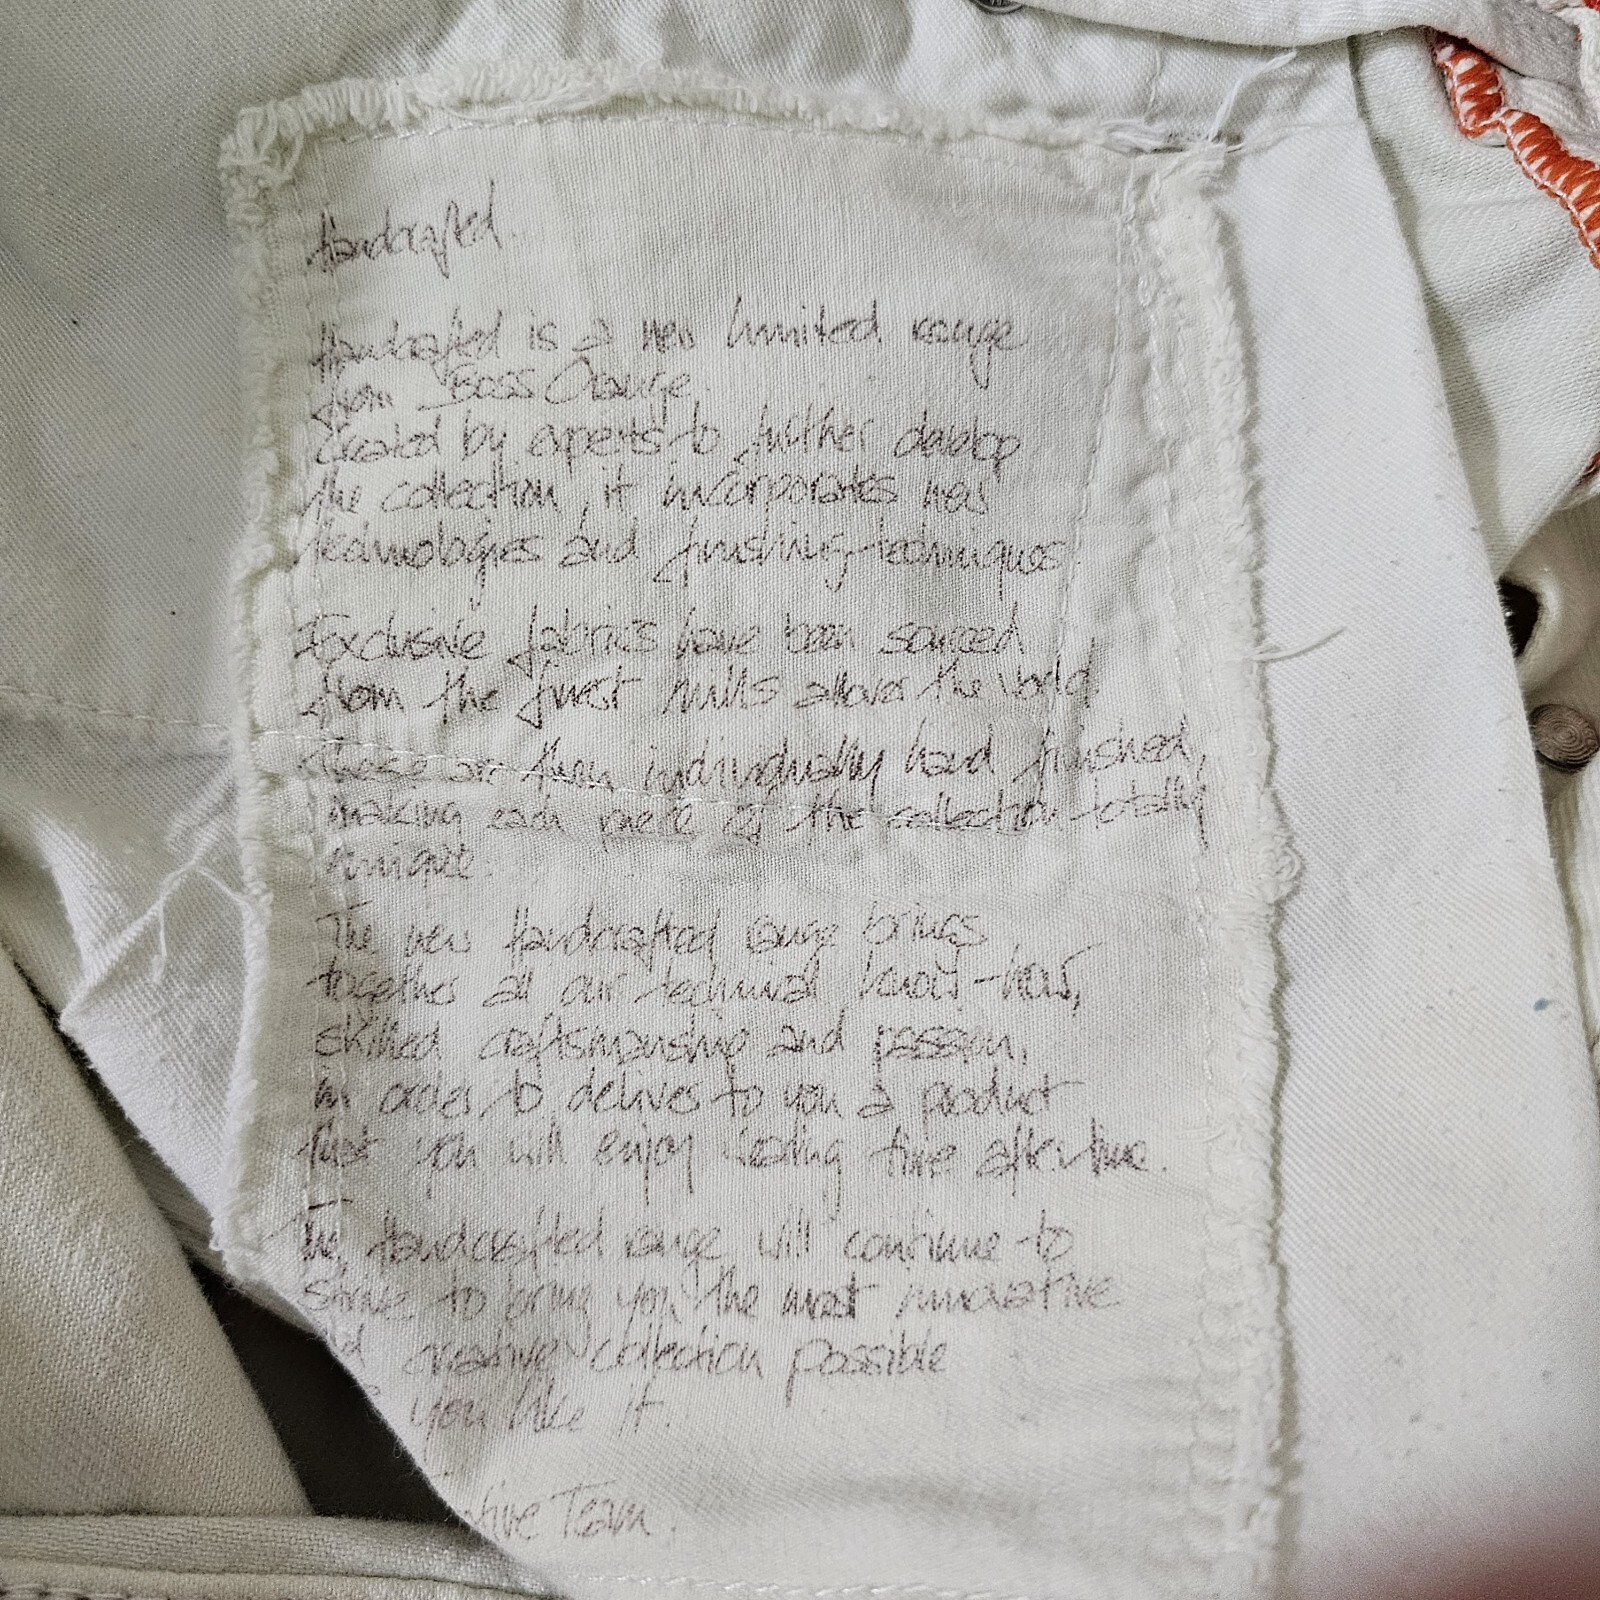 Handcrafted.
Handcrafted is a new limited range
from Boss Orange.
Created by experts to further develop
the collection, it incorporates new
technologies and finishing techniques.
Exclusive fabrics have been sourced
from the finest mills allover the world
These are then individually hand finished,
making each piece of the collection totally
unique.
The new Handcrafted range brings
together all our technical know-how,
skilled craftsmanship and passion,
in order to deliver to you a product
that you will enjoy wearing time after time.
The Handcrafted range will continue to
strive to bring you the most innovative
creative collection possible
you like it.
Team.